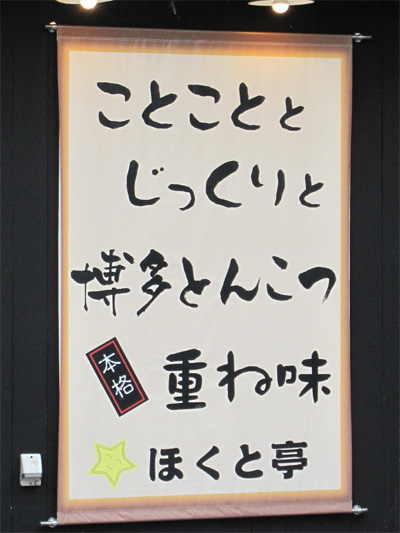 ことことと
じっくりと
博多とんこつ
本格
重ね味
ほくと亭